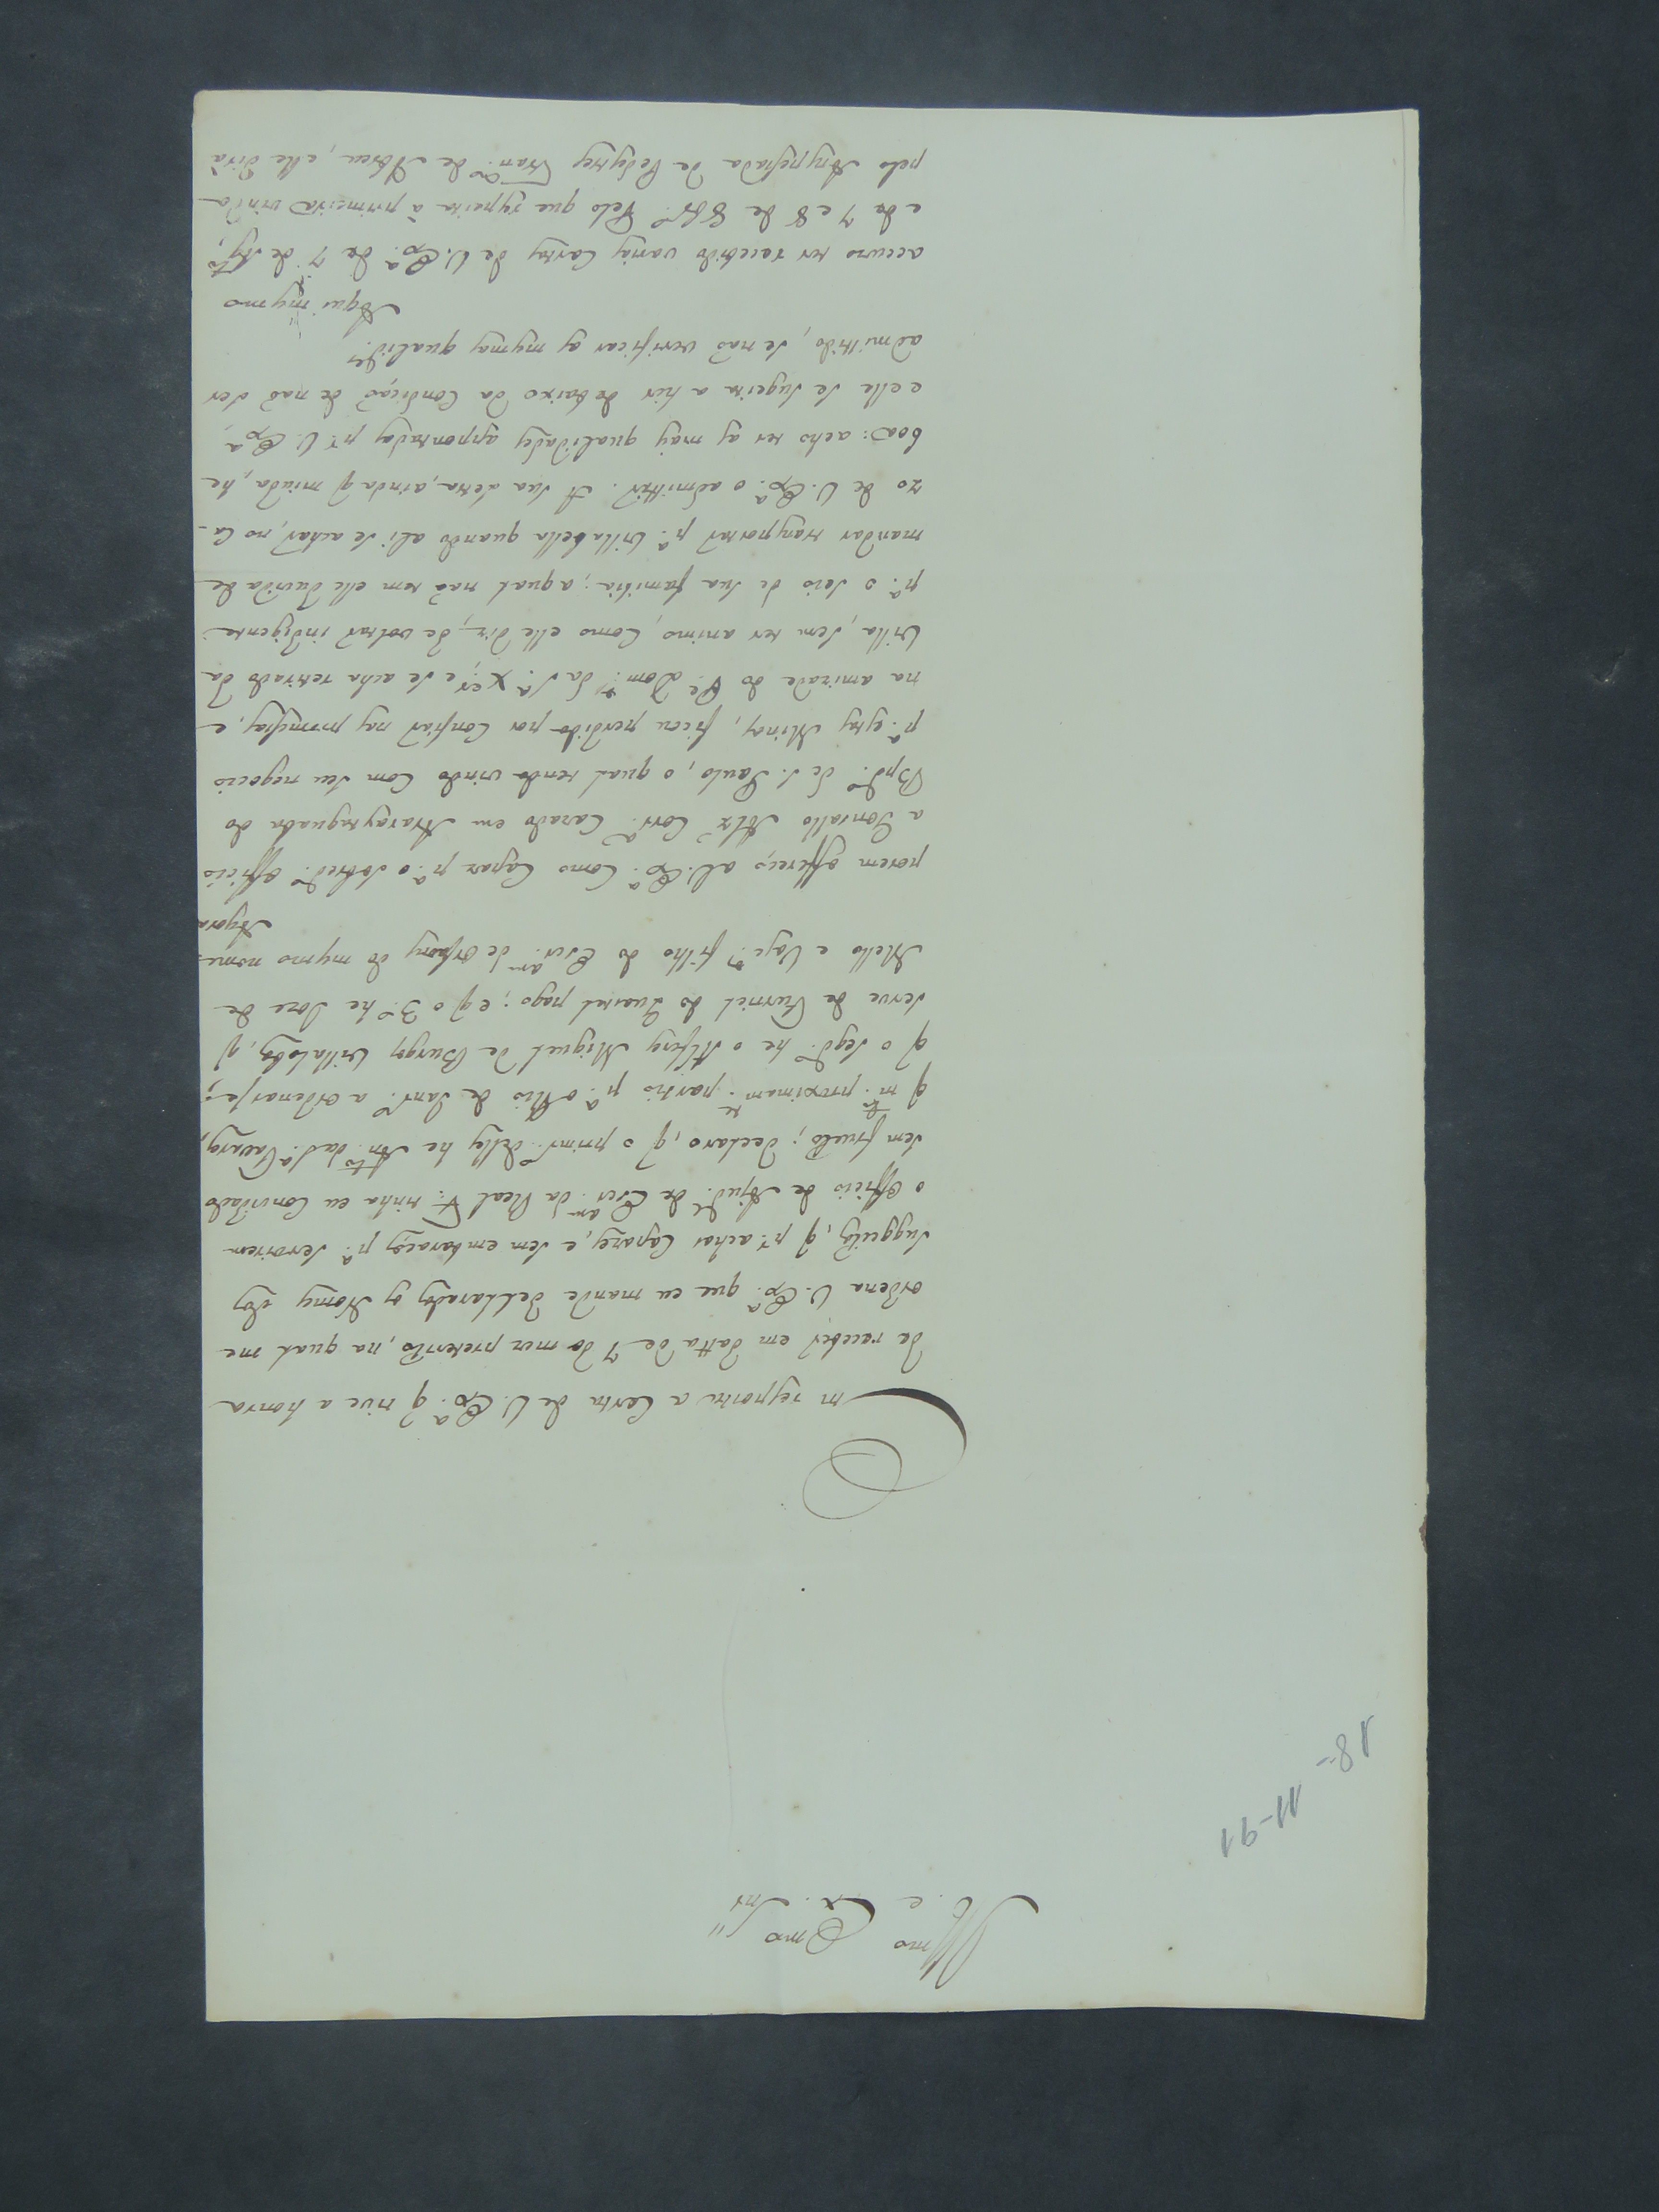 18-11-91
Illmo Exmo Snr
M. e Ex. Snr
Em resposta a Carta de V. Exª. q̃ tive a honra
de receber em datta de 7 do mez preterito, na qual me
ordena V. Exª. que eu mande declarados os Nomes dos
sugeitos, q̃ pr. achar Capazes, e sem embaraços pª. servirem
o Officio de Ajude. de Escram. da Real F. tinha eu Convidado
sem fructo; declaro, q̃ o primrº. delles he Antº. da Sª.
q̃ mtº. proximamte. partio pª. o Rio de Janrº. a ordenarse;
q̃ o segdº. he o Alferes Miguel de Burgos Villalobos, q̃
serve de Furriel do Quartel pago; e q̃ o 3º. he Joze de
Mello e Vascos. filho do Escram. de Orfaons do mesmo nome.
Agora
porem offereço a V. Exª. Como Capaz pª. o sobredº. Officio
a Gonsallo Corrª. Cazado em do
Bpdº. de S. Paulo, o qual tendo vindo Com seu negocio
pª. estas Minas, ficou perdido por Confiar nas promessas, e
na amizade do Pe. Doms. da Sª. Xer., e se acha retirado da
Villa, sem ter animo, Como elle diz, de voltar indigente
pª. o seio de sua familia; a qual naõ tem elle duvida de
mandar transportar pª. Villabella quando ali se achar, no Ca-
zo de V. Exª. o admittir. A sua letra, ainda q̃ miuda, he
boa: acho ter as mais qualidades appontadas pr. V. Exª.,
e elle se sugeita a hir debaixo da Condiçaõ de naõ ser
admittido, se naõ verificar as mesmas qualides.
Aqui mesmo
accuzo ter recebido varias Cartas de V. Exª. de 7 de Agtº.,
e de 7 e 8 de 8brº. Pelo que respeita à primeira vinda
pelo Anspessada de Pedestres Franco. de Abreu, elle dirá